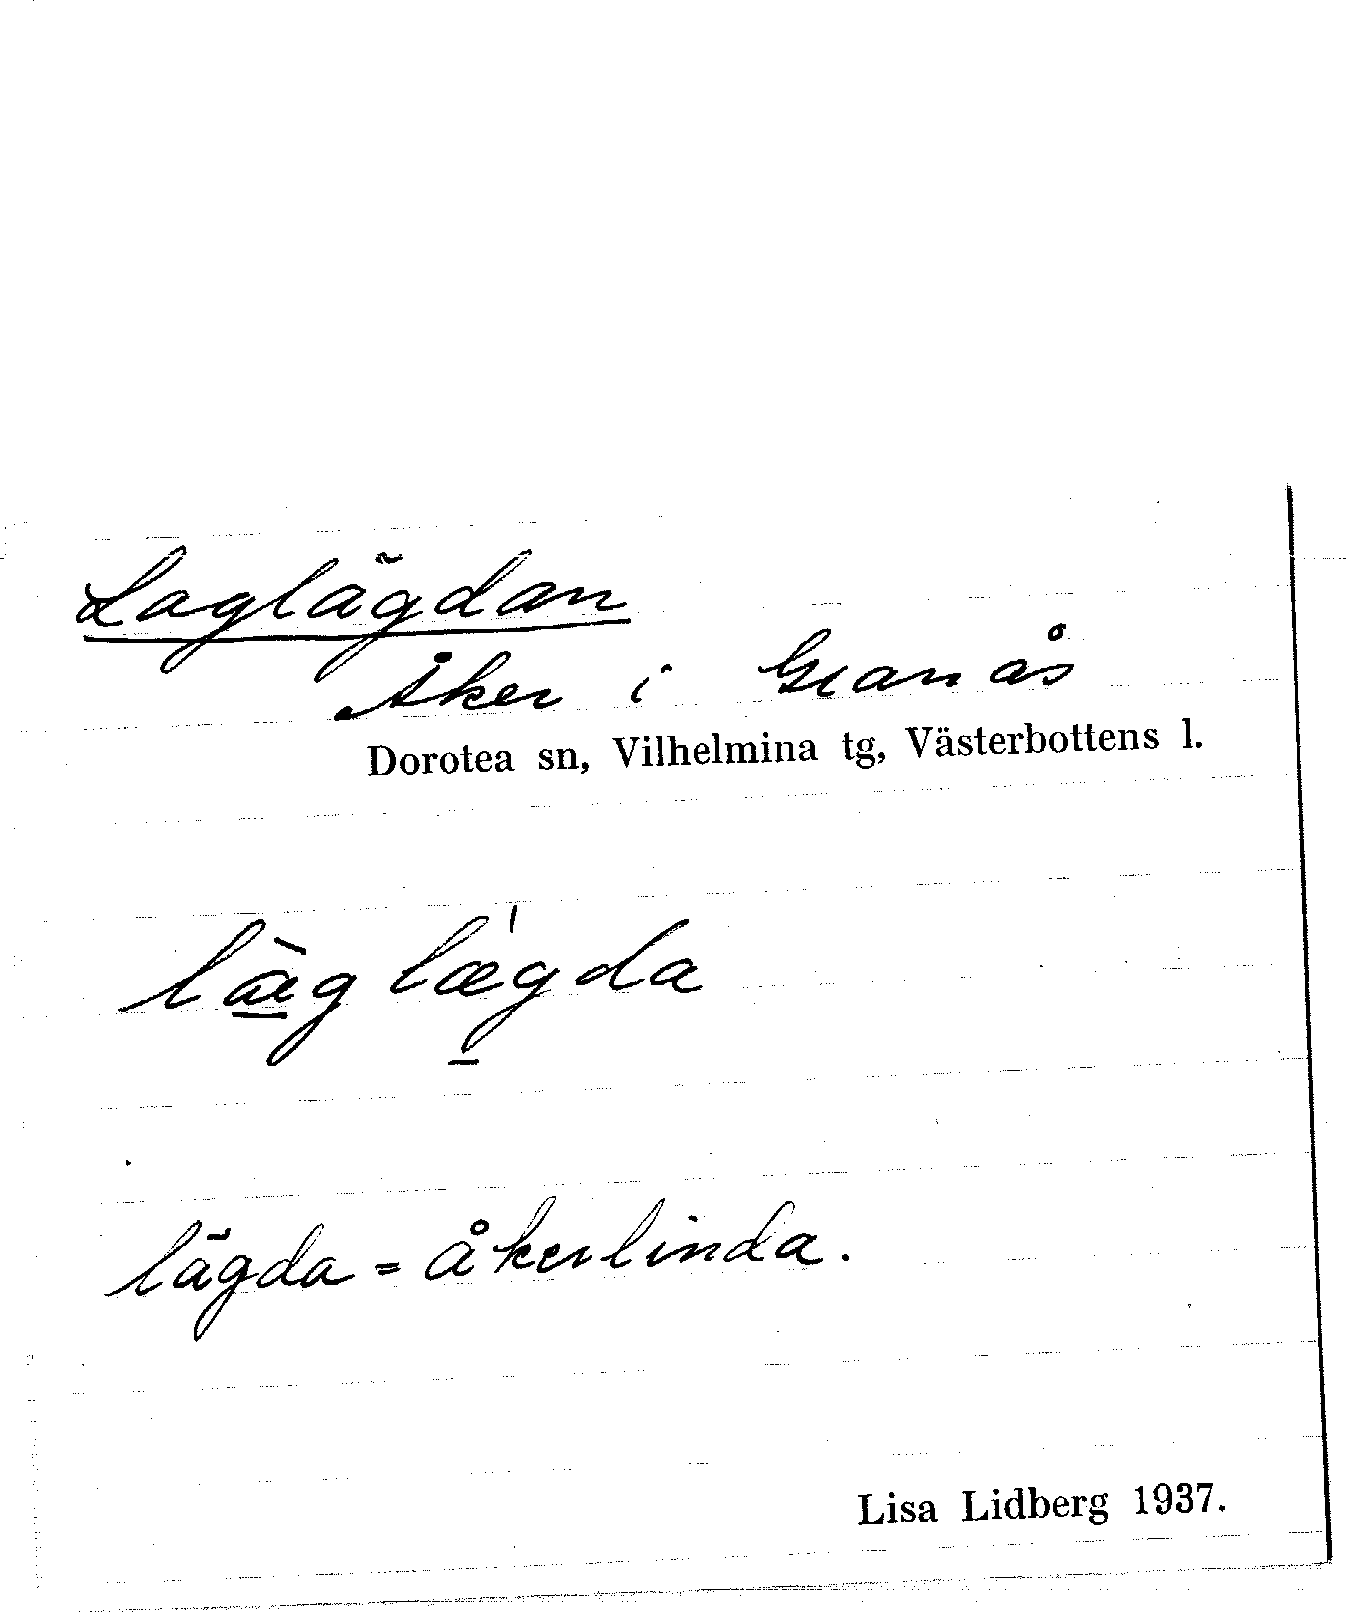 Laglägdan
Åker i Granås
Dorotea sn, Vilhelmina tg, Västerbottens l.
là̱glǽgda
lägda = åkerlinda.
Lisa Lidberg 1937.